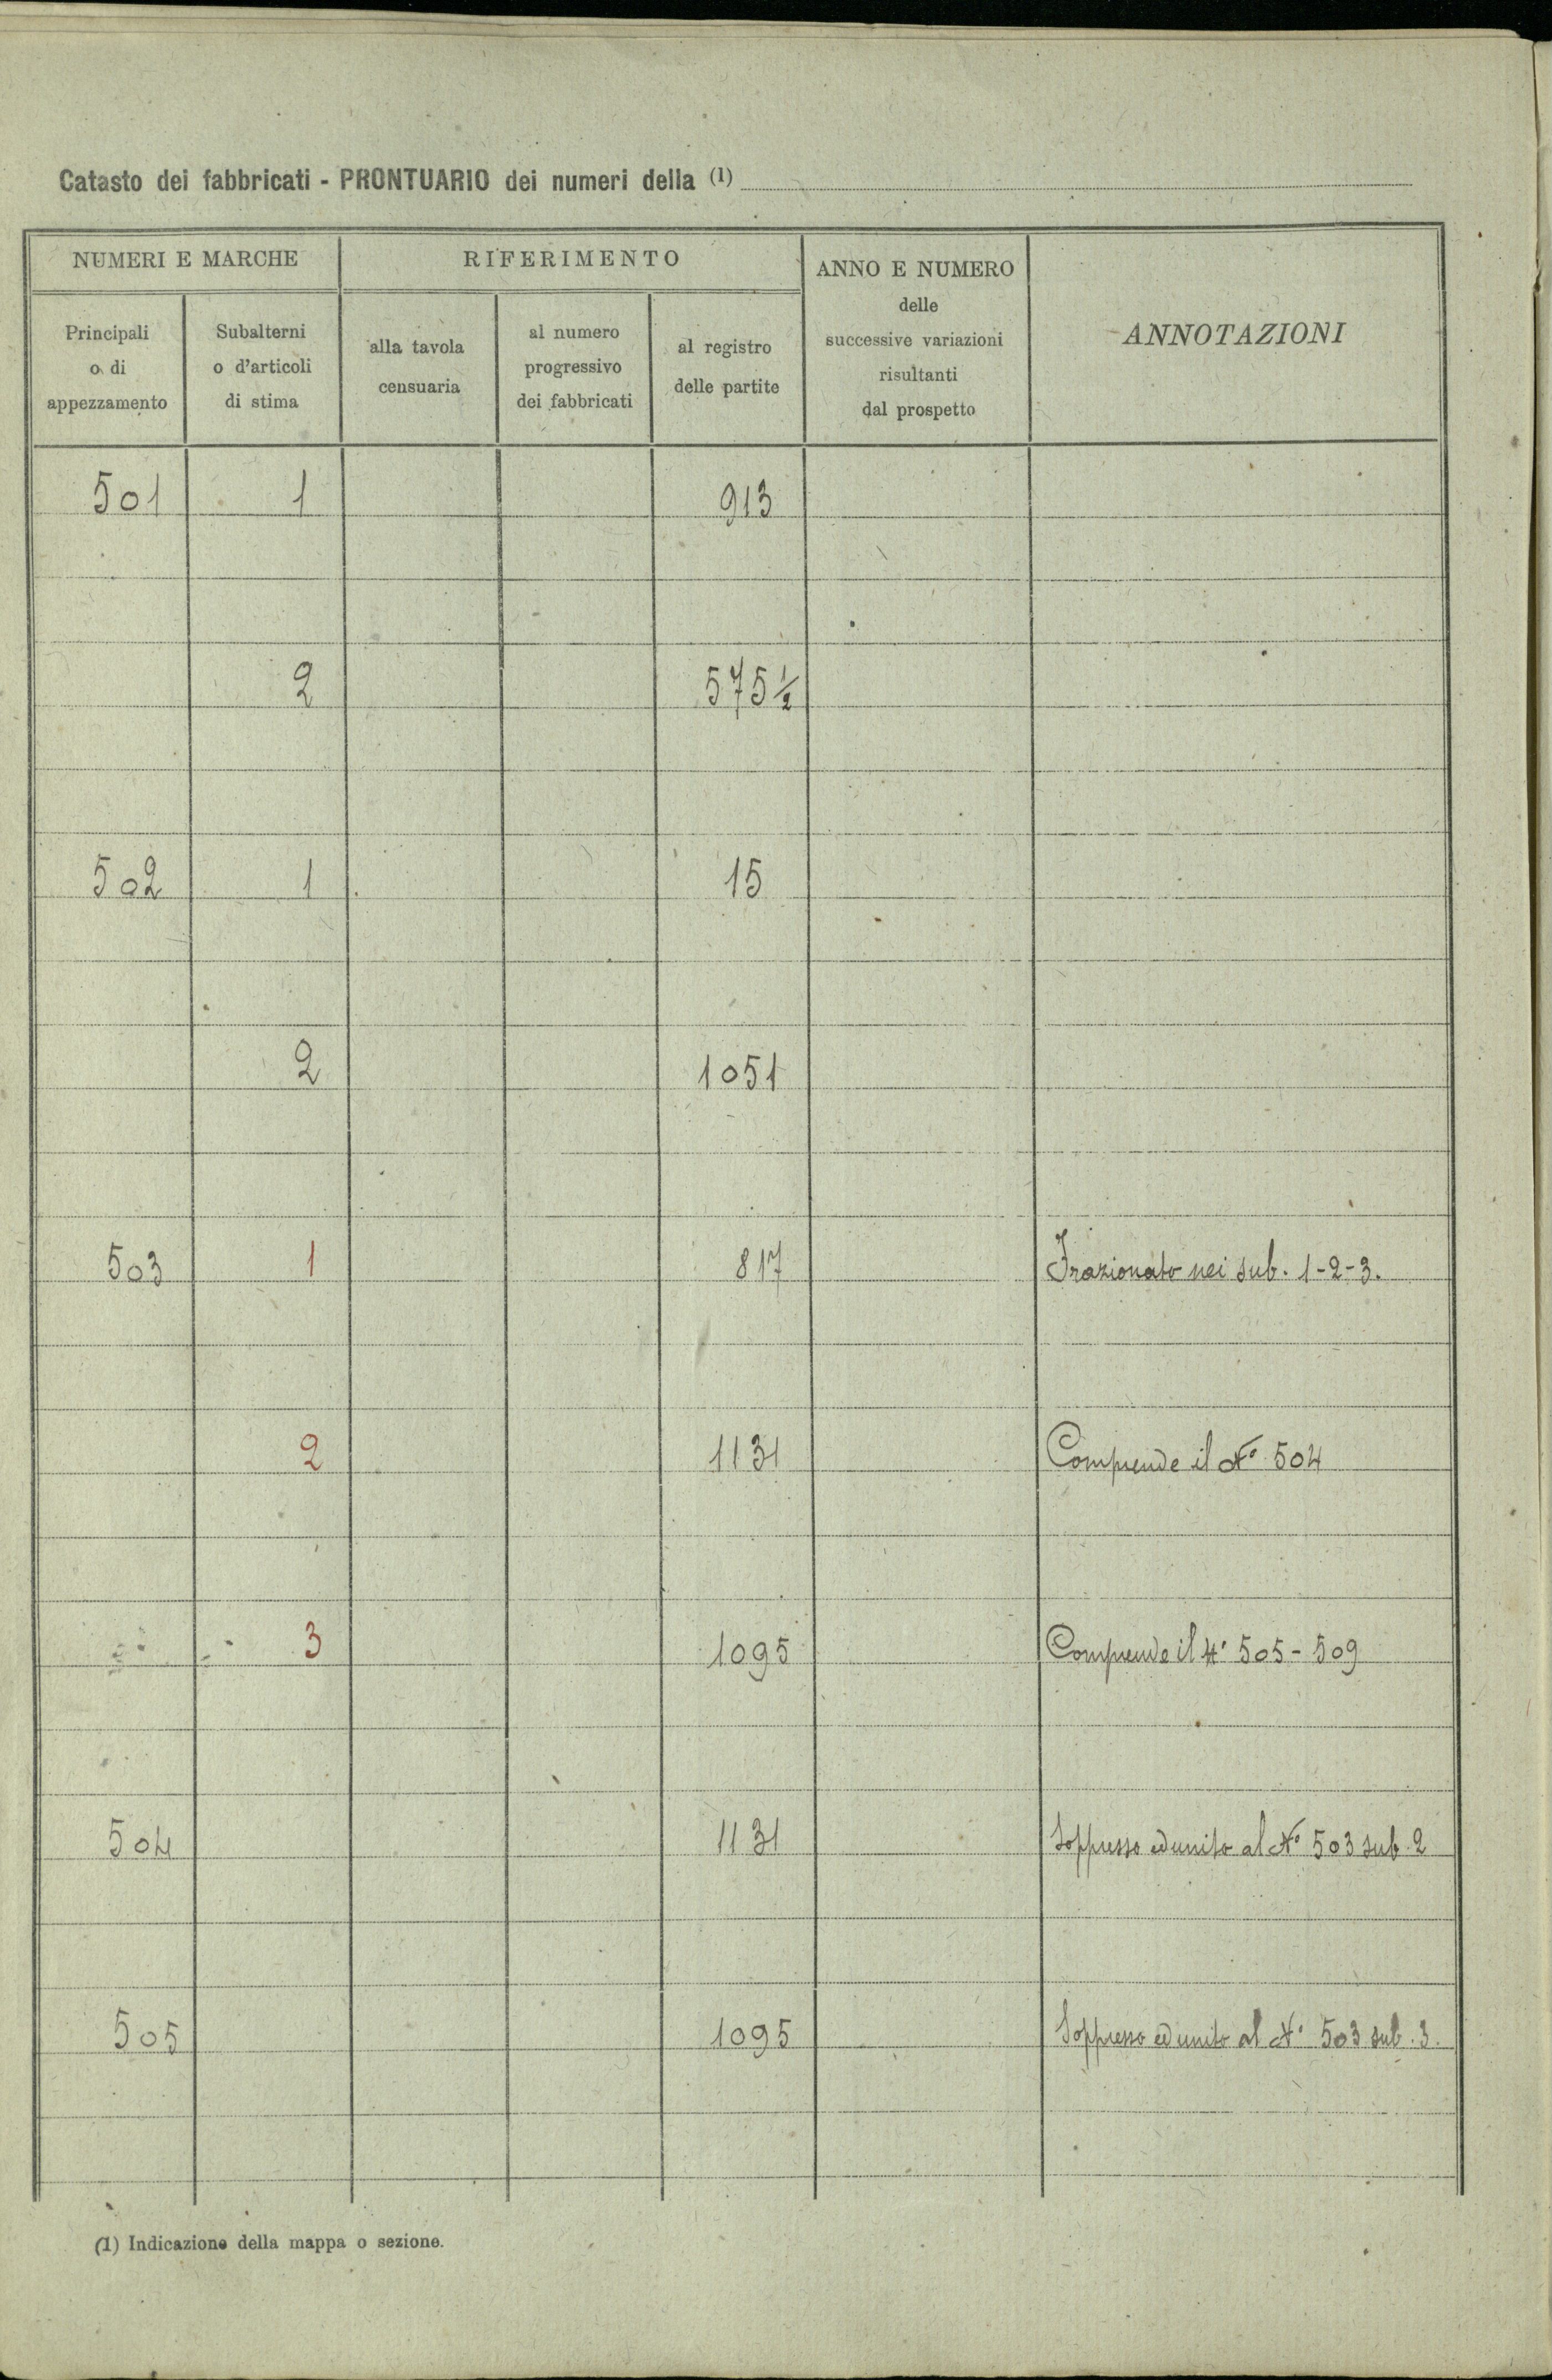 Catasto dei fabbricati - PRONTUARIO dei numeri della (1)
NUMERI E MARCHE
RIFERIMENTO
ANNO E NUMERO
delle
successive variazioni
risultanti
dal prospetto
ANNOTAZIONI
Principali
o di
appezzamento
Subalterni
o d'articoli
di stima
alla tavola
censuaria
al numero
progressivo
dei fabbricati
al registro
delle partite
501 1 913
2 575 ½
502 1 15
2 1051
503 1 817 Frazionato nei sub. 1-2-3.
2 1131 Comprende il N° 504
3 1095 Comprende il N° 505 - 509
504 1131 Soppresso ed unito al N° 503 sub. 2
505 1095 Soppresso ed unito al N° 503 sub. 3.
(1) Indicazione della mappa o sezione.